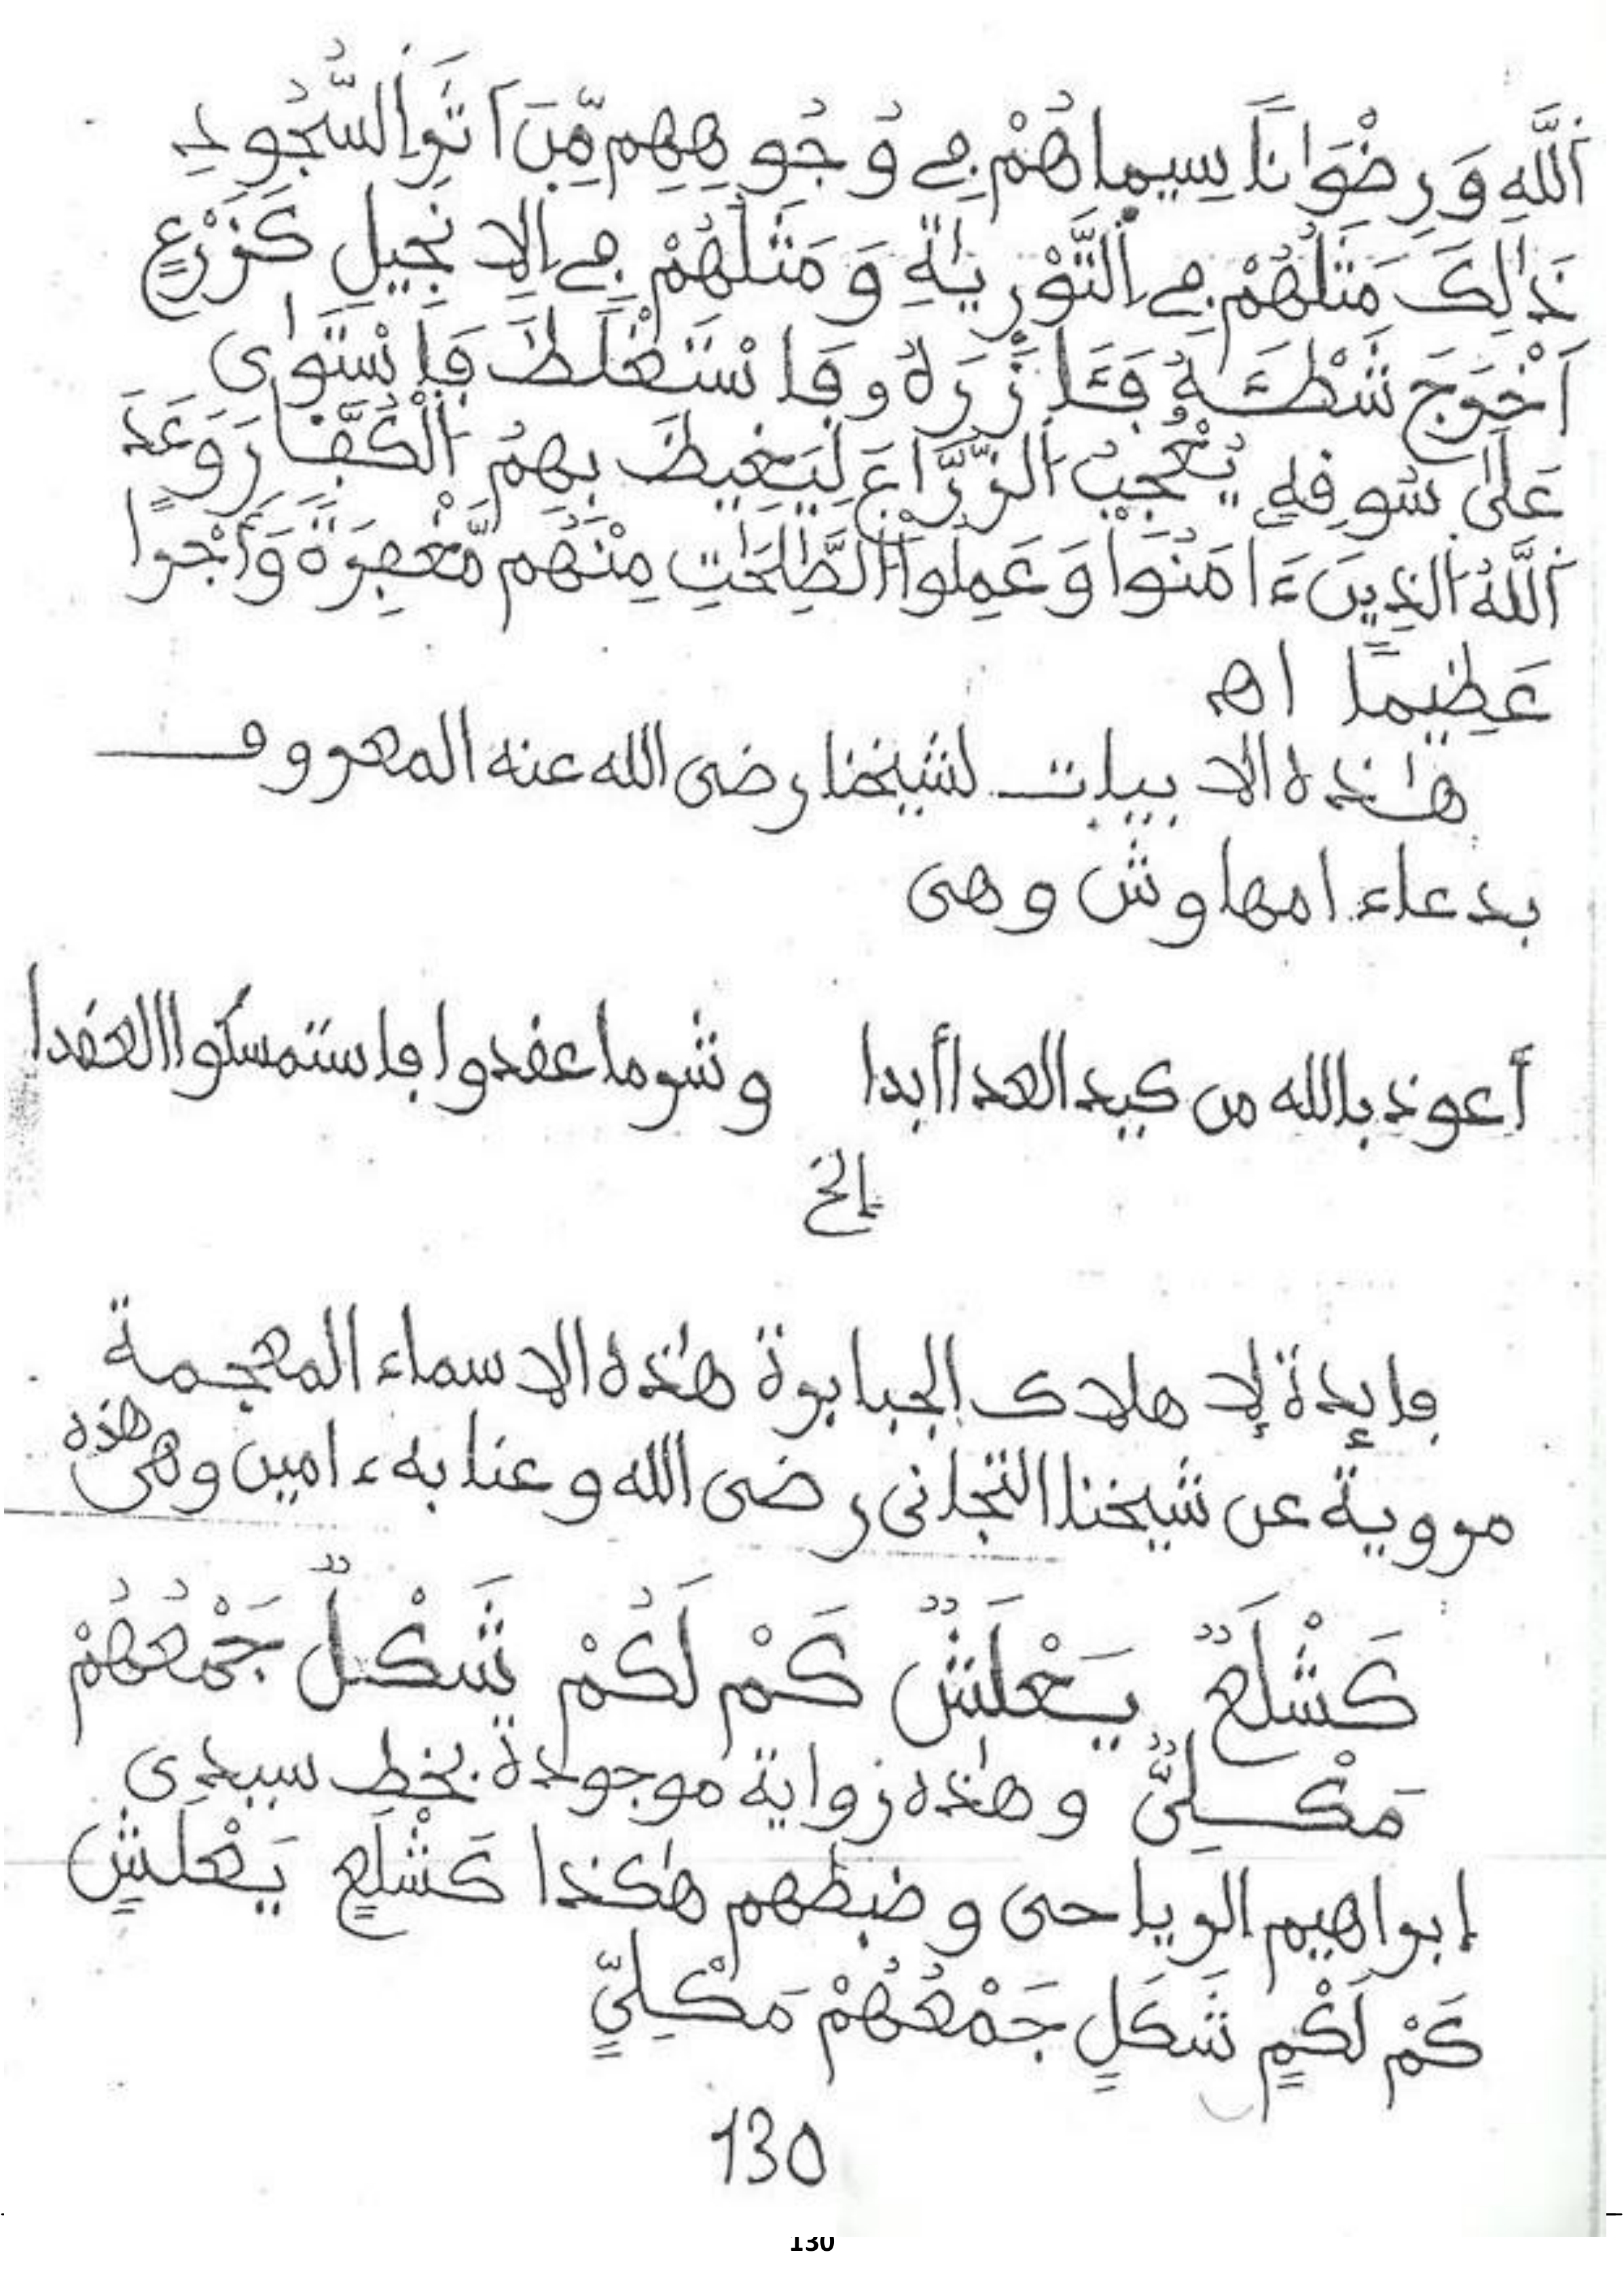 اَللَّهِ وَرِضْوَانًا سِيمَاهُمْ فِے وُجُوهِهِم مِّنَ اَثَرِ السُّجُودِ
ذَٰلِكَ مَثَلُهُمْ فِے اِلتَّوْرِيٰةِ وَمَثَلُهُمْ فِے اِلِانجِيلِ كَزَرْعٍ
اَخْرَجَ شَطْـَٔهُ فَـَٔازَرَهُۥ فَاسْتَغْلَظَ فَاسْتَوٰى
عَلَىٰ سُوقِهِۦ يُعْجِبُ اُلزُّرَّاعَ لِيَغِيظَ بِهِمُ اُلْكُفَّارَ وَعَدَ
اَللَّهُ اُلذِينَ ءَامَنُوا وَعَمِلُوا اُلصَّٰلِحَٰتِ مِنْهُم مَّغْفِرَةً وَأَجْرًا
عَظِيمًا اهـ
هٰذه الابيات لشيخنا رضى الله عنه المعروف
بدعاء امهاوش وهى
أعوذ بالله من كيد العدا أبدا وشر ما عقدوا فاستمسكوا العقدا
إلخ
فايدة لإهلاك الجبابرة هٰذه الاسماء المعجمة
مروية عن شيخنا التجانى رضى الله وعنا به ءامين وهى هذه
كَشْلَعٌ يَعْلَشٌ كَمْ لَكُمْ شَكْلٌ جَمْعُهُمْ
مَكْلِىٌّ وهٰذه زواية موجودة بخط سيدى
إبراهيم الرياحى وضبطهم هٰكذا كَشْلَعٍ يَعْلَشٍ
كَمْ لَكْمٍ شَكَلٍ جَمْعُهُمْ مَكْلِىٍّ
130
130